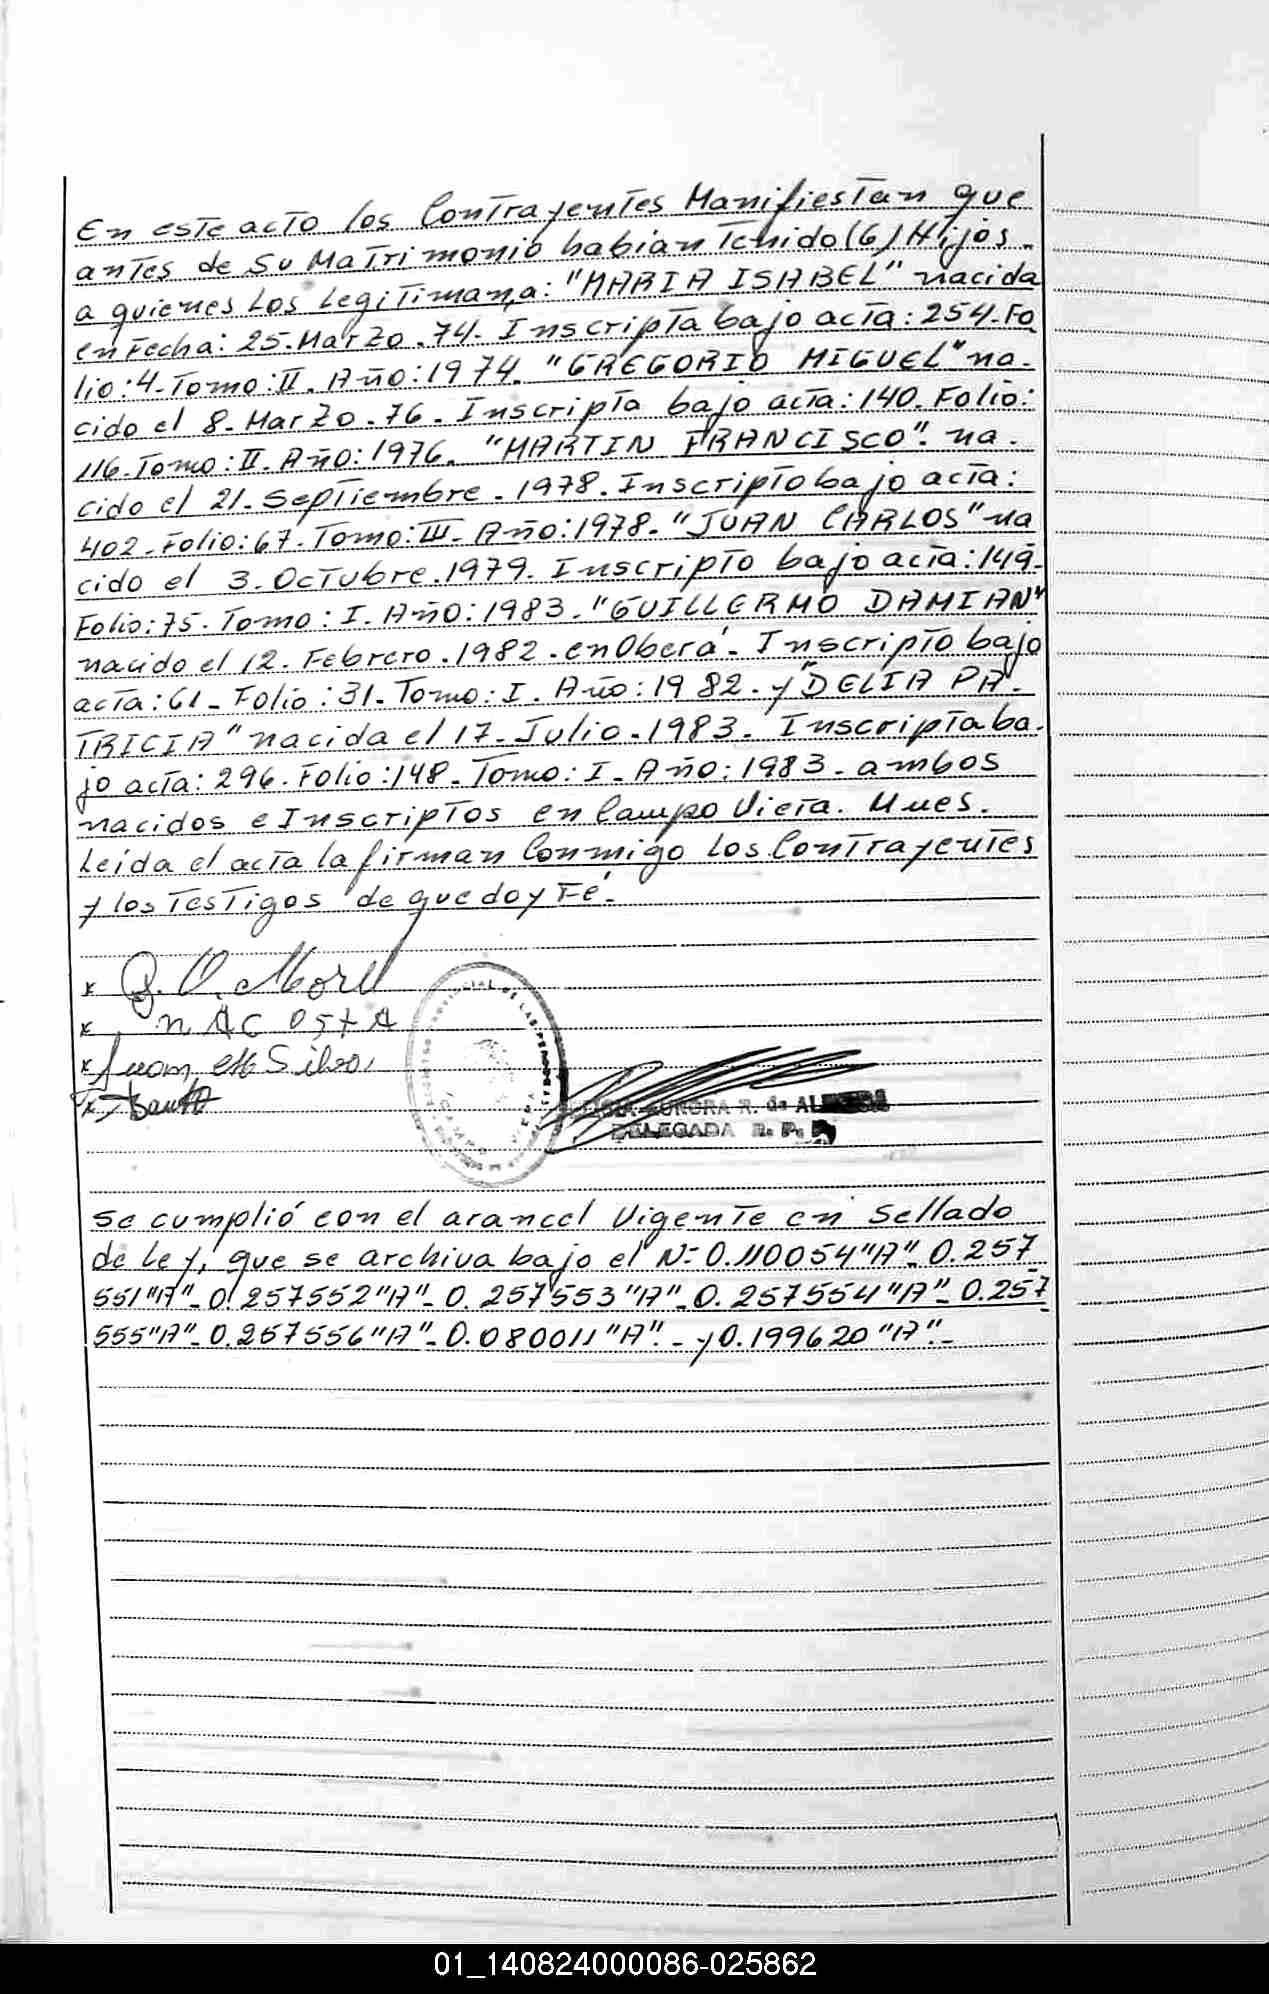 En este acto los Contrayentes Manifiestan que
antes de Su Matrimonio habian Tenido (6) Hijos.
a quienes Los Legitiman, a: "MARIA ISABEL" nacida
en Fecha: 25. Marzo. 74. Inscripta bajo acta: 254. Fo
lio: 4. Tomo: II. Año: 1974. "GREGORIO MIGUEL" na.
cido el 8. Marzo. 76. Inscripta bajo acta: 140. Folio:
116. Tomo: II. Año: 1976. "MARTIN FRANCISCO". na.
cido el 21. Septiembre. 1978. Inscripto bajo acta:
402. Folio: 67. Tomo: III. Año: 1978. "JUAN CARLOS" na
cido el 3. Octubre. 1979. Inscripto bajo acta: 149.
Folio: 75. Tomo: I. Año: 1983. "GUILLERMO DAMIAN"
nacido el 12. Febrero. 1982. en Oberá. Inscripto bajo
acta: 61. Folio: 31. Tomo: I. Año: 1982. y "DELIA PA.
TRICIA" nacida el 17. Julio. 1983. Inscripta ba.
jo acta: 296. Folio: 148. Tomo: I. Año: 1983. ambos
nacidos e Inscriptos en Campo Viera. Mnes.
Leida el acta la firman Conmigo Los Contrayentes
y los Testigos de que doy Fé.
x
x n Ac osta
x Juan Silva
x
AURORA R. de
DELEGADA R. P.
Se cumplió con el arancel Vigente en Sellado
de Ley, que se archiva bajo el Nº 0.110054 "A". 0.257
551 "A". 0.257552 "A". 0.257553 "A". 0.257554 "A". 0.257
555 "A". 0.257556 "A". 0.080011 "A". y 0.199620 "A".
01_140824000086-025862